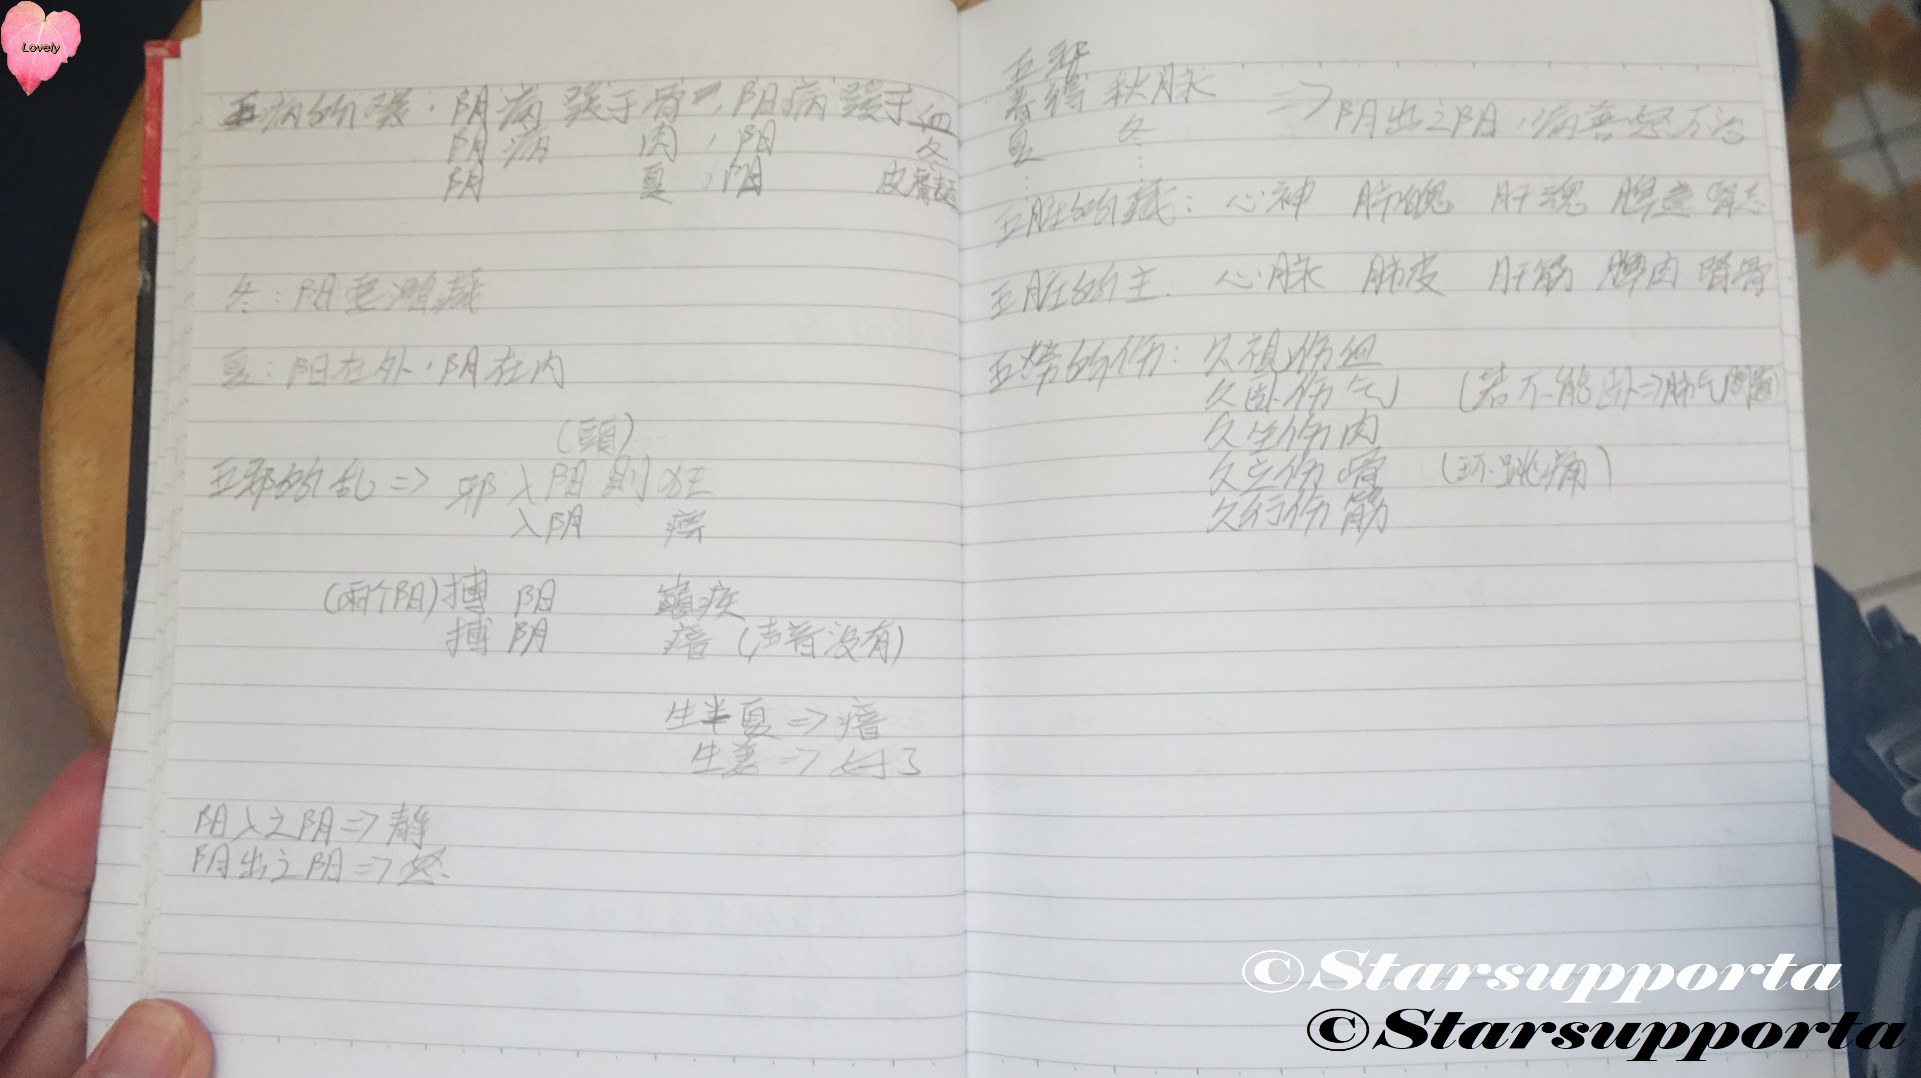 Lovely
五病的发．阴病发于骨，阳病发于血
阴病 肉，阳 冬
阴 夏，阴 皮膚
冬：阴 藏
夏：阳在外，阴在内
(頭)
五邪的乱 => 邪入阳則狂
入阴 痹
(兩个阴)搏 阳 巔疾
搏 阴 瘖 (声音没有)
生半夏 => 瘖
生姜 => 好了
阳入之阴 => 静
阴出之阳 => 怒
五邪
春得秋脉 => 阴出之阳，病善怒不治
夏 冬
五脏的藏：心神 肺魄 肝魂 脾意 腎志
五脏的主．心脉 肺皮 肝筋 脾肉 腎骨
五勞的伤：久視伤血
久卧伤气 (若不能卧=>肺气問題)
久坐伤肉
久立伤骨 (环跳痛)
久行伤筋
©Starsupporta
©Starsupporta